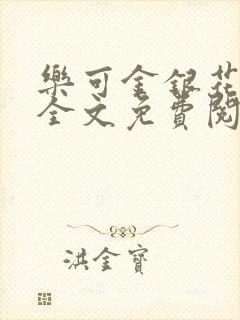 樂可金銀花
全文免費閱
洪金寶